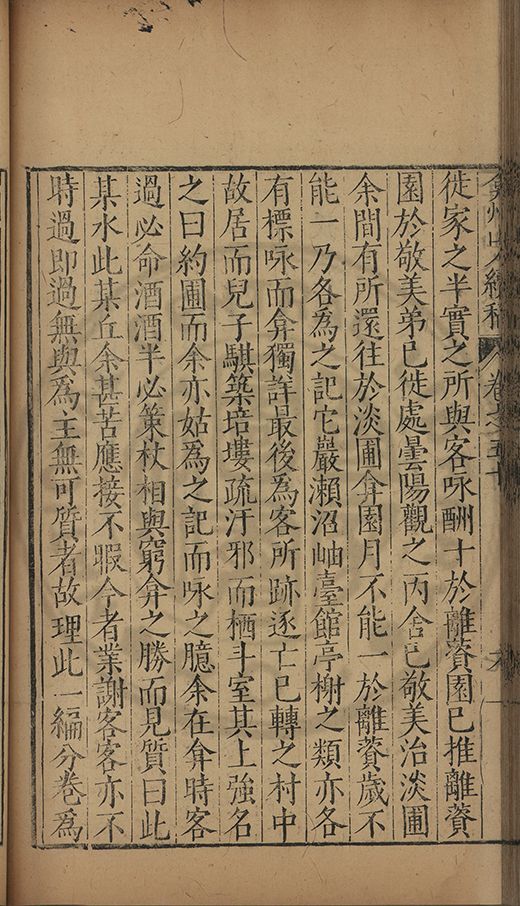 弇州山人續稿 卷之五十
徙家之半實之所與客咏酬十於離薋園已推離薋
園於敬美弟已徙處曇陽觀之丙舍已敬美治淡圃
余間有所還往於淡圃弇園月不能一於離薋歲不
能一乃各為之記它巖瀨沼岫臺館亭榭之類亦各
有標咏而弇獨詳最後為客所跡逐亡已轉之村中
故居而兒子騏築培塿疏汙邪而栖斗室其上強名
之曰約圃而余亦姑為之記而咏之臆余在弇時客
過必命酒酒半必策杖相與窮弇之勝而見質曰此
某水此某丘余甚苦應接不暇今者業謝客客亦不
時過即過無與為主無可質者故理此一編分卷為